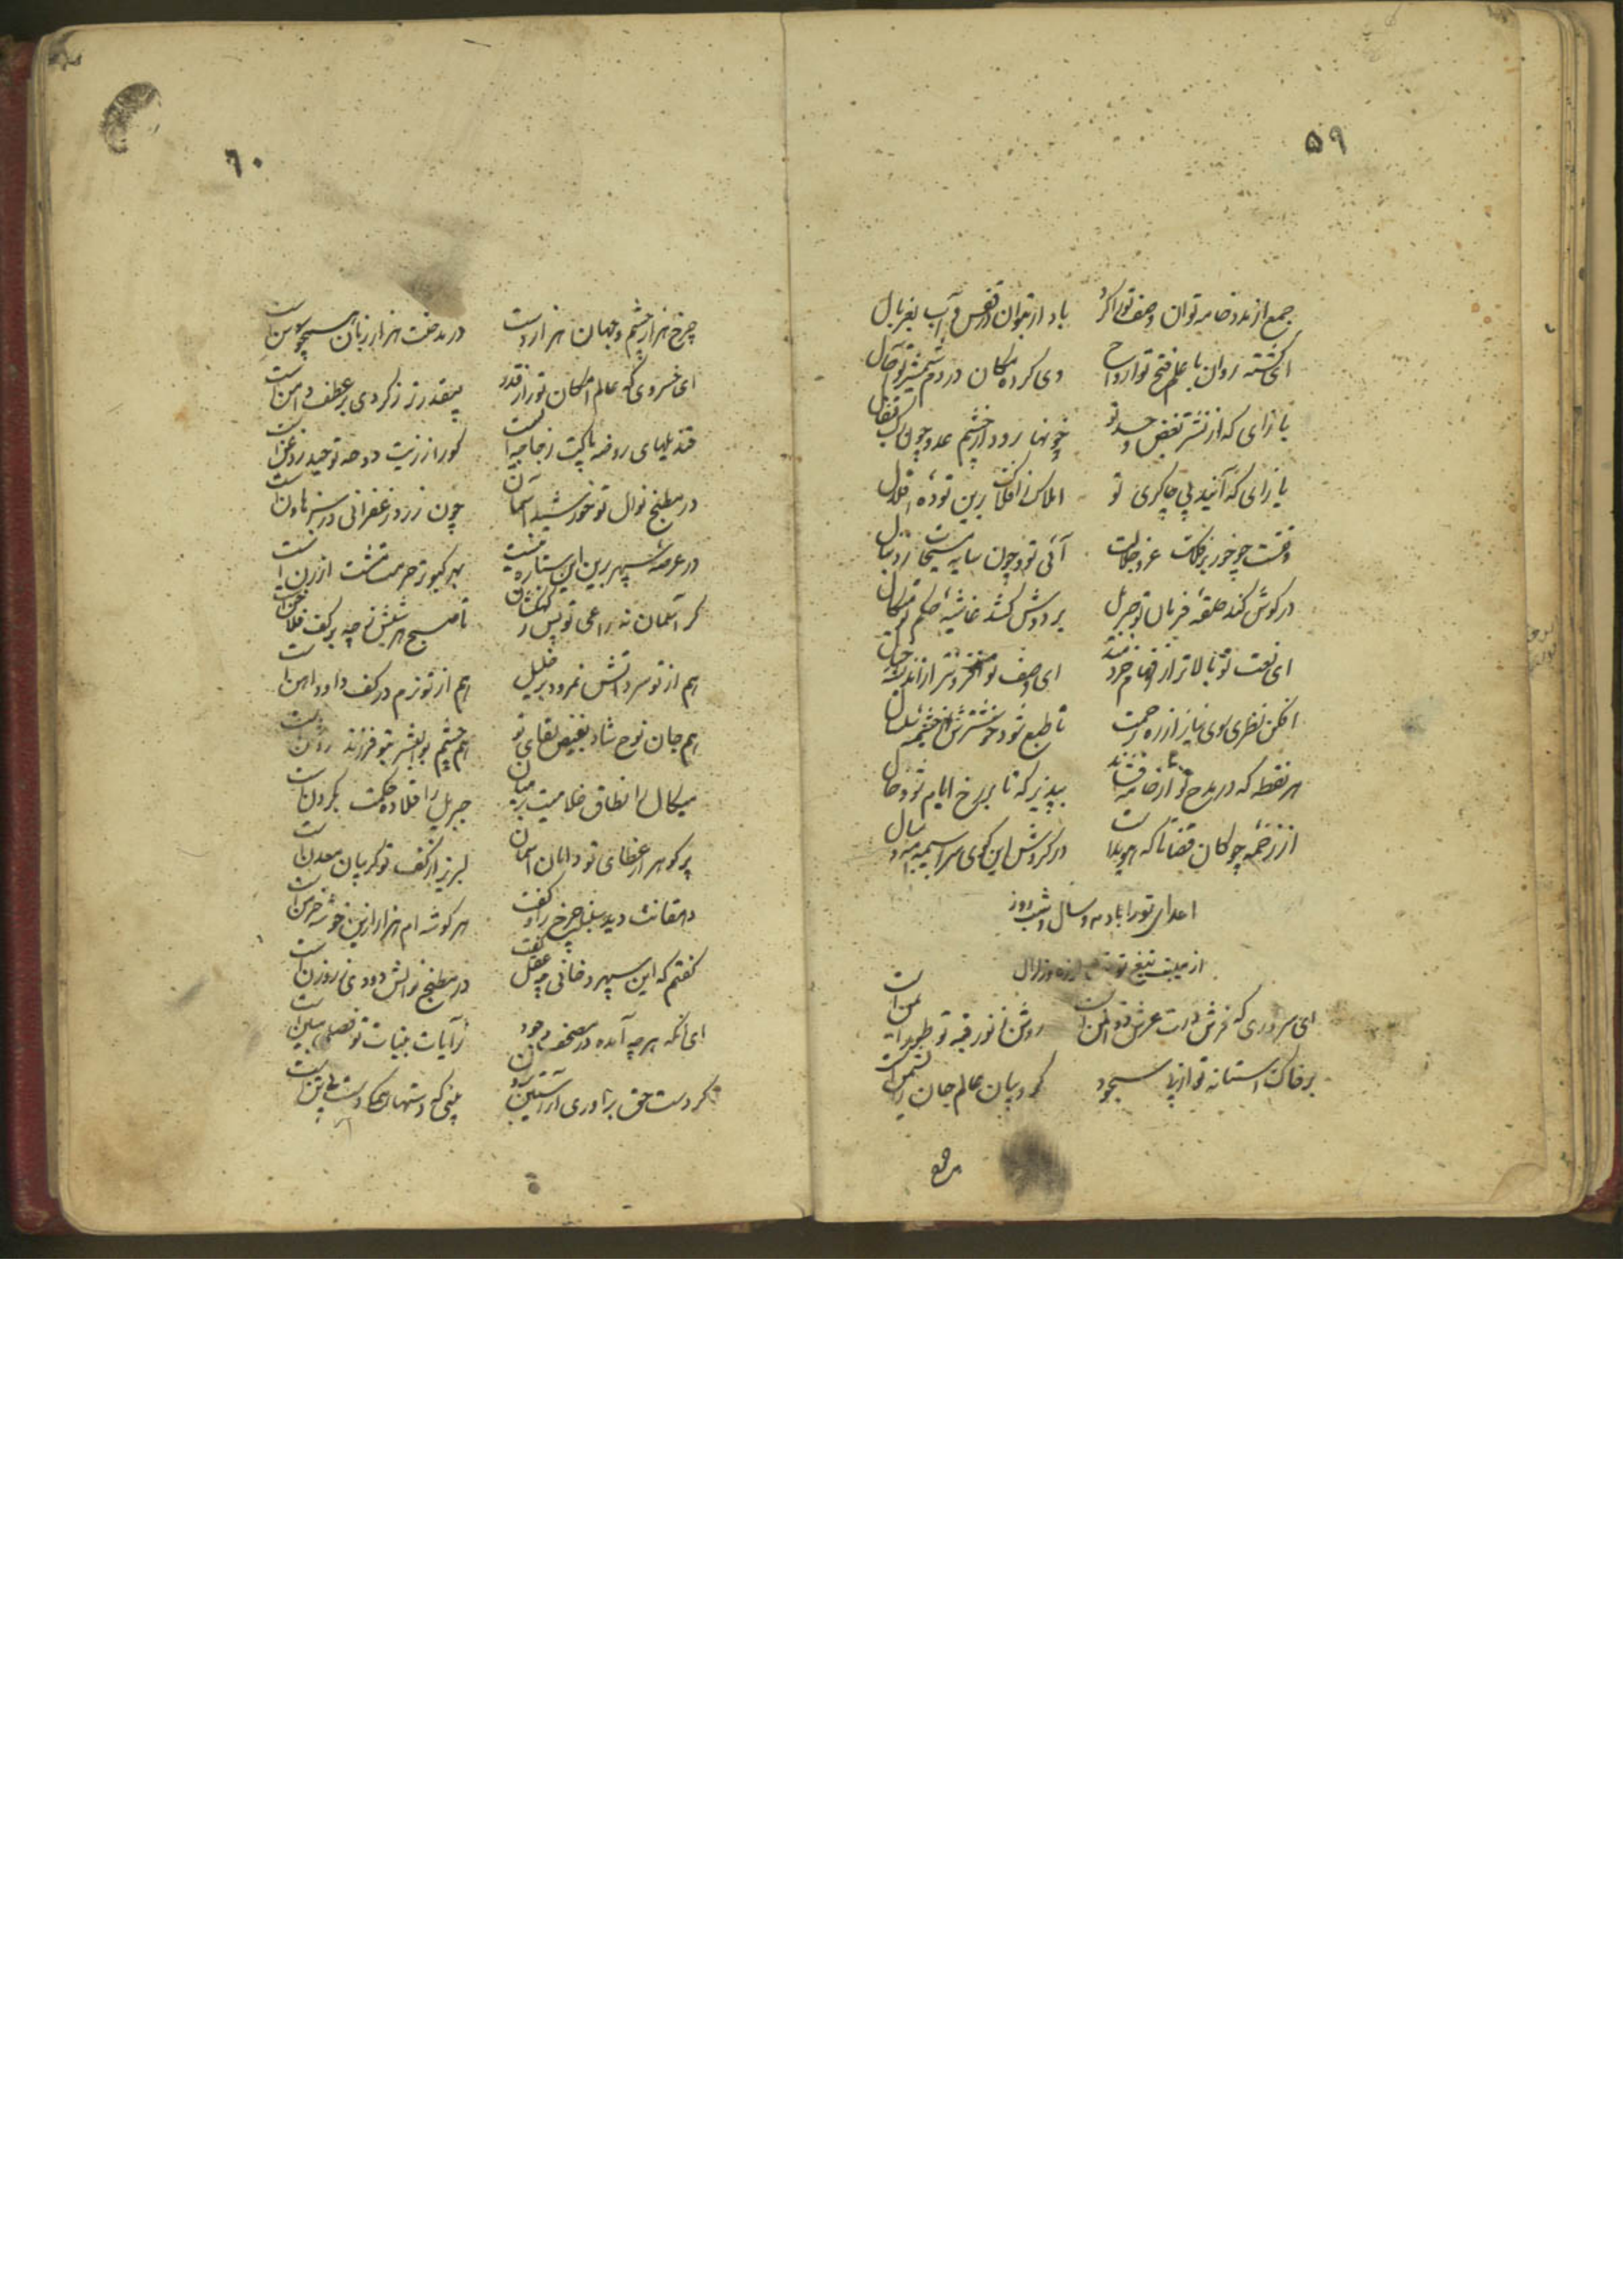 ۵۹
جمع از مدد خامه توان وصف تو را کرد باد ار بتوان در قفس و آب بغربال
ای گشته روان با علم فتح تو ارواح وی کرده مکان در دم شمشیر تو آجال
باز ای که از نشتر بغض و حسد تو خونها رود از چشم عدو چون رگ قیفال
باز ای که آیند پی چاکری تو املاک ز افلاک برین توده اقلال
وقتست چو خور بر فلک عز و جلالت آئی تو و چون سایه مسیحات ز دنبال
در گوش کند حلقه فرمان تو جبریل بر دوش کشد غاشیه حکم تو میکال
ای نعت تو بالاتر از افهام خردمند ای وصف تو از اندیشه
افکن نظری سوی نیاز از ره رحمت تا طبع شود خوشترش از چشمه سلسال
هر نقطه که در مدح تو از خامه فشاند بپذیر که تا بر رخ ایام شود خال
از زخمه چوگان قضا تا که هویداست در گردش این گوی سراسیمه مه و سال
اعدای تو را باد مه و سال و شب و روز
از هیبت تیغ تو زلزال
ای سروری که فرش درت عرش ذوالمن است روشن ز نور قبه تو طور ایمن است
بر خاک آستانه تو از پی سجود کروبیان عالم جان را نشیمن است
چرخ
۶۰
چرخ هزار چشم و جهان هزار دست در مدحت هزار زبان همچو سوسن است
ای خسروی که عالم امکان تو را ز قدر بیقدرتر ز گردی بر عطف دامن است
قندیلهای روضه پاکت زجاجه‌ایست کورا ز زیت دوحه توحید روغن است
در مطبخ نوال تو خورشید و آسمان چون زرد زعفرانی در سبز هاون است
در عرصه سپهر برین این ستاره نیست بهر کبوتر حرمت مشت ارزن است
گر آسمان نه راعی تو پس ز کهکشان تا صبح هر شبش ز چه بر کف فلاخن است
هم از تو سرد آتش نمرود بر خلیل هم از تو نرم در کف داود آهن است
هم جان نوح شاد بفیض لقای تو هم چشم بوالبشر بتو فرزند روشن است
میکال را نطاق غلامیت بر میان جبریل را قلاده حکمت بگردن است
پر گوهر از عطای تو دامان آسمان لبریز از کف تو گریبان معدن است
دهقانت دید سنبله چرخ را و گفت هر گوشه ام هزار ازین خوشه خرمن است
گفتم که این سپهر دخانی چه عقل گفت در مطبخ نوالش دودی ز روزن است
ای آنکه هر چه آمده در مصحف وجود ز آیات بینات تو فصلی مبین است
گر دست حق برآوری از آستین برون بینی که دستها همگی دست بی تن است